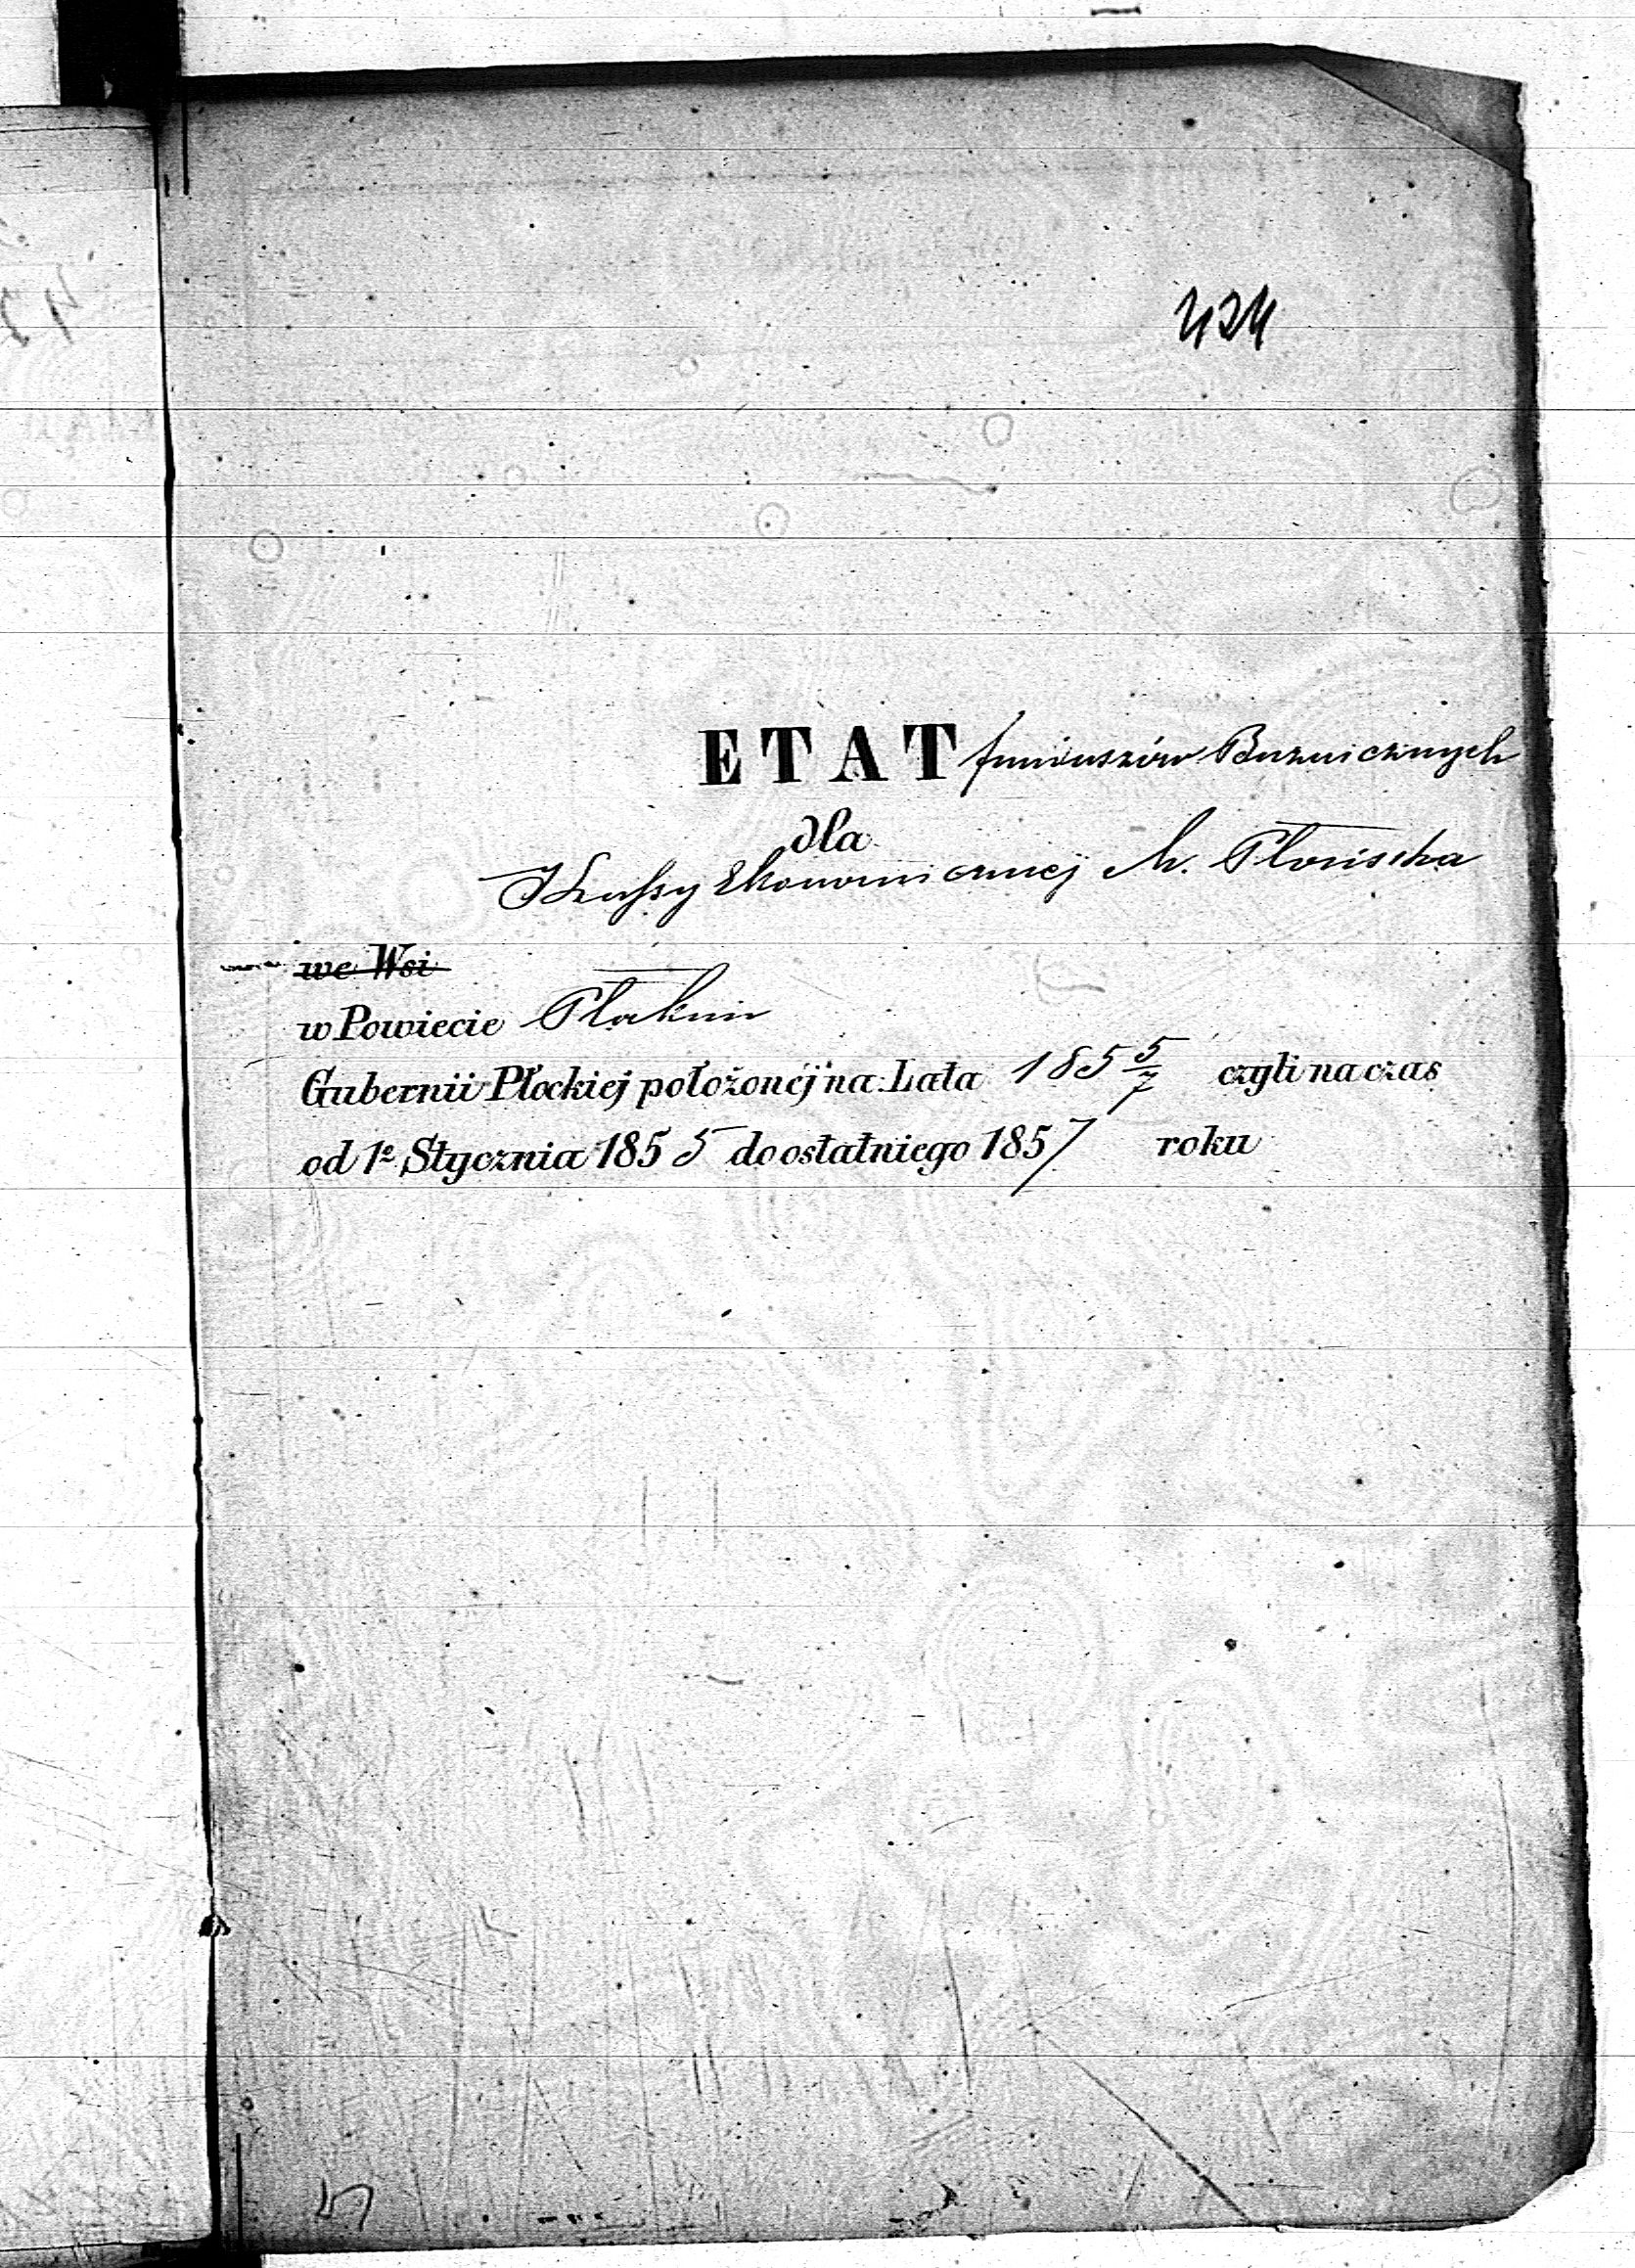 424
ETAT funduszów Bóżnicznych
dla
Kassy Ekonomicznej M. Płońska
we Wsi
w Powiecie Płockim
Gubernii Płockiej położonéj na Lata 185 5/7 czyli na czas
od 1º Stycznia 1855 do ostatniego 1857 roku